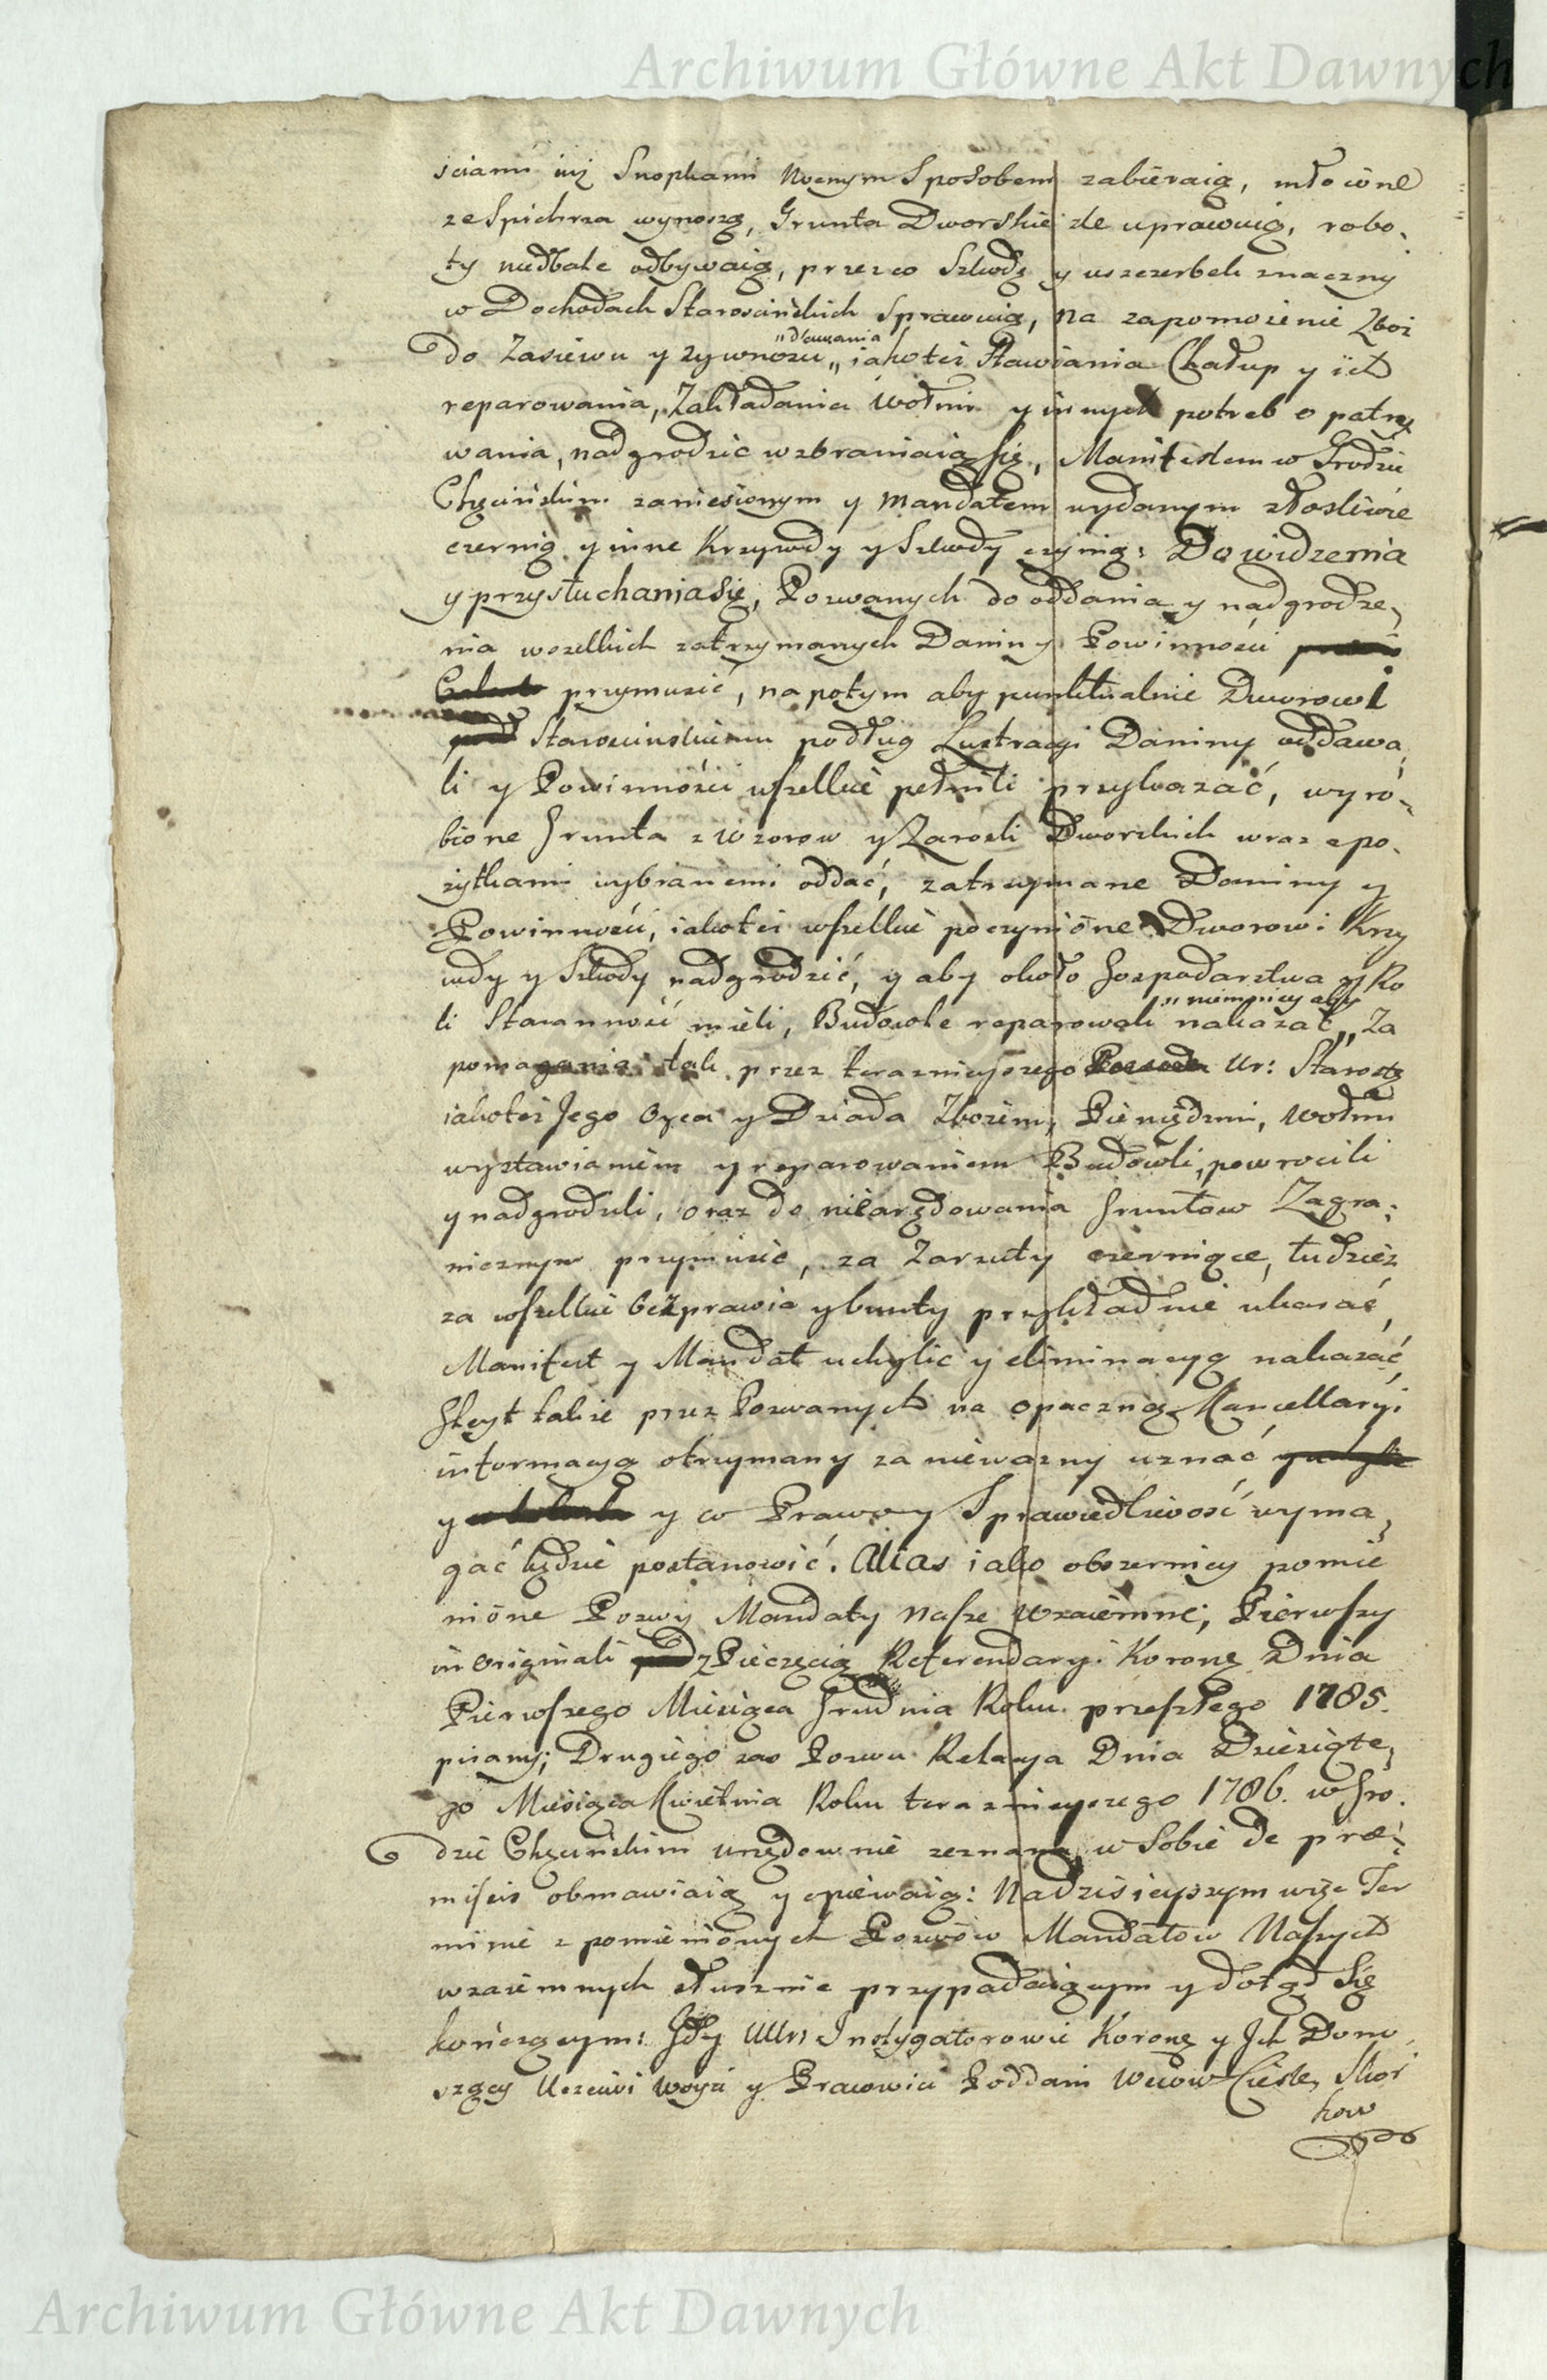 Archiwum Główne Akt Dawnych
sciami iuż Snopkami Nocnym Sposobem zabieraią, młócone
ze Spichrza wynoszą, Grunta Dworskie źle uprawuią, robo,
ty niedbale odbywaią, przez co Szkodę y uszczerbek znaczny
w Dochodach Starościńskich Sprawuią, na zapomożenie Zboż
"dawania
do Zasiewu y żywności „ iakoteż Stawiania Chałup y ich
reparowania, Zakładania Wołmi y innych potrzeb opatry
wania, nadgrodzić wzbraniaią się, Manifestem w Grodzie
Chęcińskim zaniesionym y Mandatem wydanym złosliwie
czernią y inne Krzywdy y Szkody czynią: Do widzenia
y przysłuchania Się, Pozwanych do oddania y nadgrodze,
nia wszelkich zatrzymanych Daniny Powinności
przymusić, na potym aby punktualnie Dworowi
Starościnskiemu podług Lustracyi Daniny oddawa,
li y Powinności wszelkie pełnili przykazać, wyro,
bione Grunta z Wzorow y Zarosli Dworskich wraz z po,
żytkami wybranemi oddać, zatrzymane Daniny y
Powinności, iakoteż wszelkie poczynione Dworowi Krzy
wdy y Szkody nadgrodzić, y aby około Gospodarstwa y Ro
" niemniey aby
li Staranność mieli, Budowle reparowali nakazać „ Za
pomagania tak przez teraznieyszego Ur: Starostę
iakoteż Jego Oyca y Dziada Zbożem, Pieniędzmi, Wołmi
wystawianiem y reparowaniem Budowli, powrocili
y nadgrodzili, oraz do niearędowania Gruntow Zagra,
nicznym przymusić, za Zarzuty czerniące, tudzież
za wszelkie bezprawia y bunty przykładnie ukarać,
Manifest y Mandat uchylić y eliminacyą nakazać,
Gleyt także przez Pozwanych na opaczną Kancellaryi
informacyą otrzymany za nieważny uznać
y y co Prawo y Sprawiedliwość wyma,
gać będzie postanowić. Alias iako obszerniey pomie
nione Pozwy Mandaty Nasze Wzaiemne; Pierwszy
in Originali z Pieczęcią Referendaryi Koronę Dnia
Pierwszego Miesiąca Grudnia Roku przeszłego 1785.
pisany; Drugiego zaś Pozwu Relacya Dnia Dziesiąte,
go Miesiąca Kwietnia Roku teraznieyszego 1786. w Gro,
dzie Chęcińskim urzędownie zeznana, w Sobie de præ,
missis obmawiaią y opiewaią: Na dzisieyszym więc Ter
minie z pomienionych Pozwów Mandatow Naszych
wzaiemnych słusznie przypadaiącym y dotąd Się
kończącym: Gdy UUr: Instygatorowie Koronę y Ich Dono,
szący Uczciwi Woyci y Pracowici Poddani Wsiow Ciesle, Skor
kow
Archiwum Główne Akt Dawnych